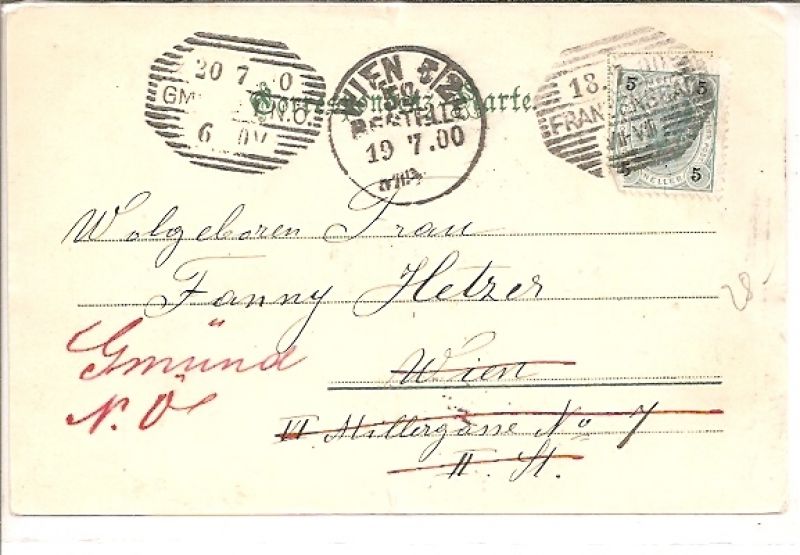 20 7 0
GM N.Ö.
6
WIEN 5/2
BESTELLT
19 7.00
18.
FRANZENSBAD
VII-VIII
5 5
5 5
HELLER
Correspondenz-Karte.
Wolgeboren Frau
Fanny Hetzer
Gmünd
N.Ö
Wien
VI Millergasse No 7
II. St.
28.-